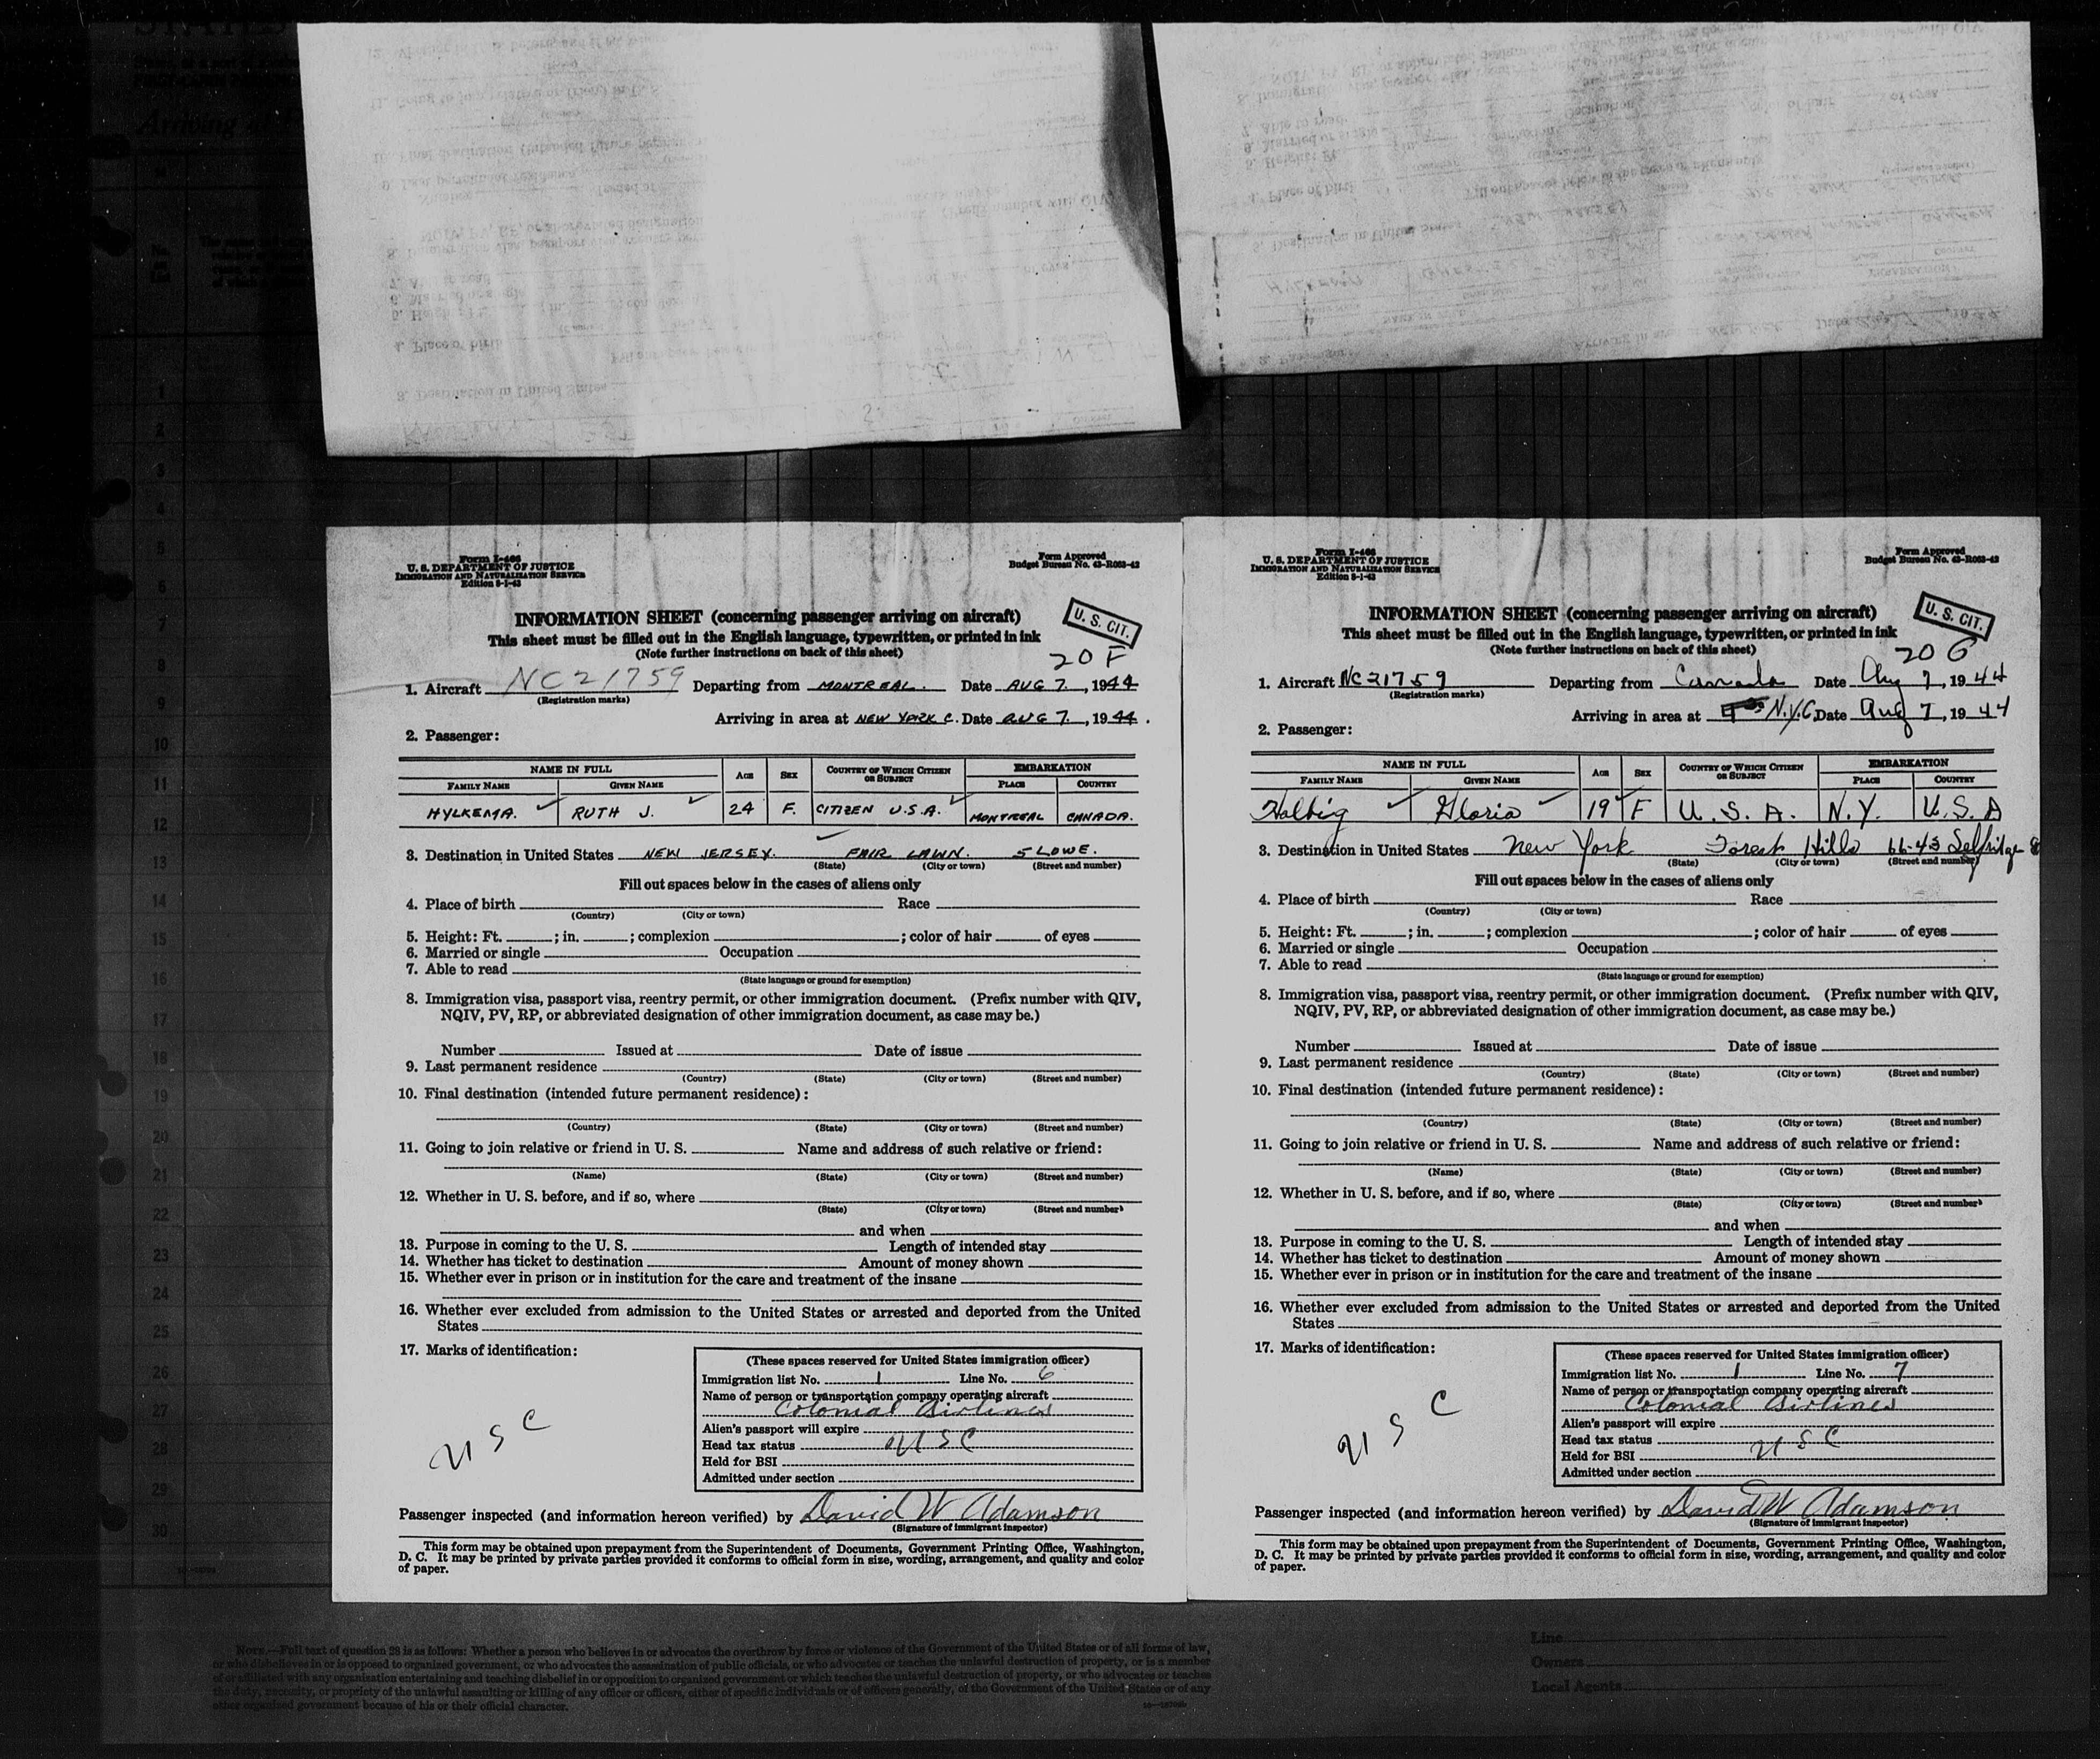 Form I-466
U. S. DEPARTMENT OF JUSTICE
IMMIGRATION AND NATURALIZATION SERVICE
Edition 8-1-43
Form Approved
Budget Bureau No. 43-R063-42
INFORMATION SHEET (concerning passenger arriving on aircraft)
U. S. CIT.
This sheet must be filled out in the English language, typewritten, or printed in ink
(Note further instructions on back of this sheet)
20 F
1. Aircraft NC21759 Departing from MONTREAL. Date AUG 7., 1944
(Registration marks)
Arriving in area at NEW YORK C. Date AUG 7., 1944.
2. Passenger:
NAME IN FULL AGE SEX COUNTRY OF WHICH CITIZEN OR SUBJECT EMBARKATION
FAMILY NAME GIVEN NAME PLACE COUNTRY
HYLKEMA. RUTH J. 24 F. CITIZEN U.S.A. MONTREAL CANADA.
3. Destination in United States NEW JERSEY. FAIR LAWN. 5 LOWE.
(State) (City or town) (Street and number)
Fill out spaces below in the cases of aliens only
4. Place of birth Race
(Country) (City or town)
5. Height: Ft. ; in. ; complexion ; color of hair of eyes
6. Married or single Occupation
7. Able to read
(State language or ground for exemption)
8. Immigration visa, passport visa, reentry permit, or other immigration document. (Prefix number with QIV,
NQIV, PV, RP, or abbreviated designation of other immigration document, as case may be.)
Number Issued at Date of issue
9. Last permanent residence
(Country) (State) (City or town) (Street and number)
10. Final destination (intended future permanent residence):
(Country) (State) (City or town) (Street and number)
11. Going to join relative or friend in U. S. Name and address of such relative or friend:
(Name) (State) (City or town) (Street and number)
12. Whether in U. S. before, and if so, where
(State) (City or town) (Street and number)
and when
13. Purpose in coming to the U. S. Length of intended stay
14. Whether has ticket to destination Amount of money shown
15. Whether ever in prison or in institution for the care and treatment of the insane
16. Whether ever excluded from admission to the United States or arrested and deported from the United
States
17. Marks of identification:
USC
(These spaces reserved for United States immigration officer)
Immigration list No. 1 Line No. 6
Name of person or transportation company operating aircraft
Colonial Airlines
Alien's passport will expire
Head tax status USC
Held for BSI
Admitted under section
Passenger inspected (and information hereon verified) by David W Adamson
(Signature of immigrant inspector)
This form may be obtained upon prepayment from the Superintendent of Documents, Government Printing Office, Washington,
D. C. It may be printed by private parties provided it conforms to official form in size, wording, arrangement, and quality and color
of paper.
Form I-466
U. S. DEPARTMENT OF JUSTICE
IMMIGRATION AND NATURALIZATION SERVICE
Edition 8-1-43
Form Approved
Budget Bureau No. 43-R063-42
INFORMATION SHEET (concerning passenger arriving on aircraft)
U. S. CIT.
This sheet must be filled out in the English language, typewritten, or printed in ink
(Note further instructions on back of this sheet)
20 G
1. Aircraft NC21759 Departing from Canada Date Aug 7, 1944
(Registration marks)
Arriving in area at N.Y.C. Date Aug 7, 1944
2. Passenger:
NAME IN FULL AGE SEX COUNTRY OF WHICH CITIZEN OR SUBJECT EMBARKATION
FAMILY NAME GIVEN NAME PLACE COUNTRY
Halbig Gloria 19 F U. S. A. N.Y. U.S.A
3. Destination in United States New York Forest Hills 66-43 Selfridge
(State) (City or town) (Street and number)
Fill out spaces below in the cases of aliens only
4. Place of birth Race
(Country) (City or town)
5. Height: Ft. ; in. ; complexion ; color of hair of eyes
6. Married or single Occupation
7. Able to read
(State language or ground for exemption)
8. Immigration visa, passport visa, reentry permit, or other immigration document. (Prefix number with QIV,
NQIV, PV, RP, or abbreviated designation of other immigration document, as case may be.)
Number Issued at Date of issue
9. Last permanent residence
(Country) (State) (City or town) (Street and number)
10. Final destination (intended future permanent residence):
(Country) (State) (City or town) (Street and number)
11. Going to join relative or friend in U. S. Name and address of such relative or friend:
(Name) (State) (City or town) (Street and number)
12. Whether in U. S. before, and if so, where
(State) (City or town) (Street and number)
and when
13. Purpose in coming to the U. S. Length of intended stay
14. Whether has ticket to destination Amount of money shown
15. Whether ever in prison or in institution for the care and treatment of the insane
16. Whether ever excluded from admission to the United States or arrested and deported from the United
States
17. Marks of identification:
USC
(These spaces reserved for United States immigration officer)
Immigration list No. 1 Line No. 7
Name of person or transportation company operating aircraft
Colonial Airlines
Alien's passport will expire
Head tax status USC
Held for BSI
Admitted under section
Passenger inspected (and information hereon verified) by David W Adamson
(Signature of immigrant inspector)
This form may be obtained upon prepayment from the Superintendent of Documents, Government Printing Office, Washington,
D. C. It may be printed by private parties provided it conforms to official form in size, wording, arrangement, and quality and color
of paper.
NOTE.—Full text of question 28 is as follows: Whether a person who believes in or advocates the overthrow by force or violence of the Government of the United States or of all forms of law,
or who disbelieves in or is opposed to organized government, or who advocates the assassination of public officials, or who advocates or teaches the unlawful destruction of property, or is a member
of or affiliated with any organization entertaining and teaching disbelief in or opposition to organized government or which teaches the unlawful destruction of property, or who advocates or teaches
the duty, necessity, or propriety of the unlawful assaulting or killing of any officer or officers, either of specific individuals or of officers generally, of the Government of the United States or of any
other organized government because of his or their official character.
Line
Owners
Local Agents